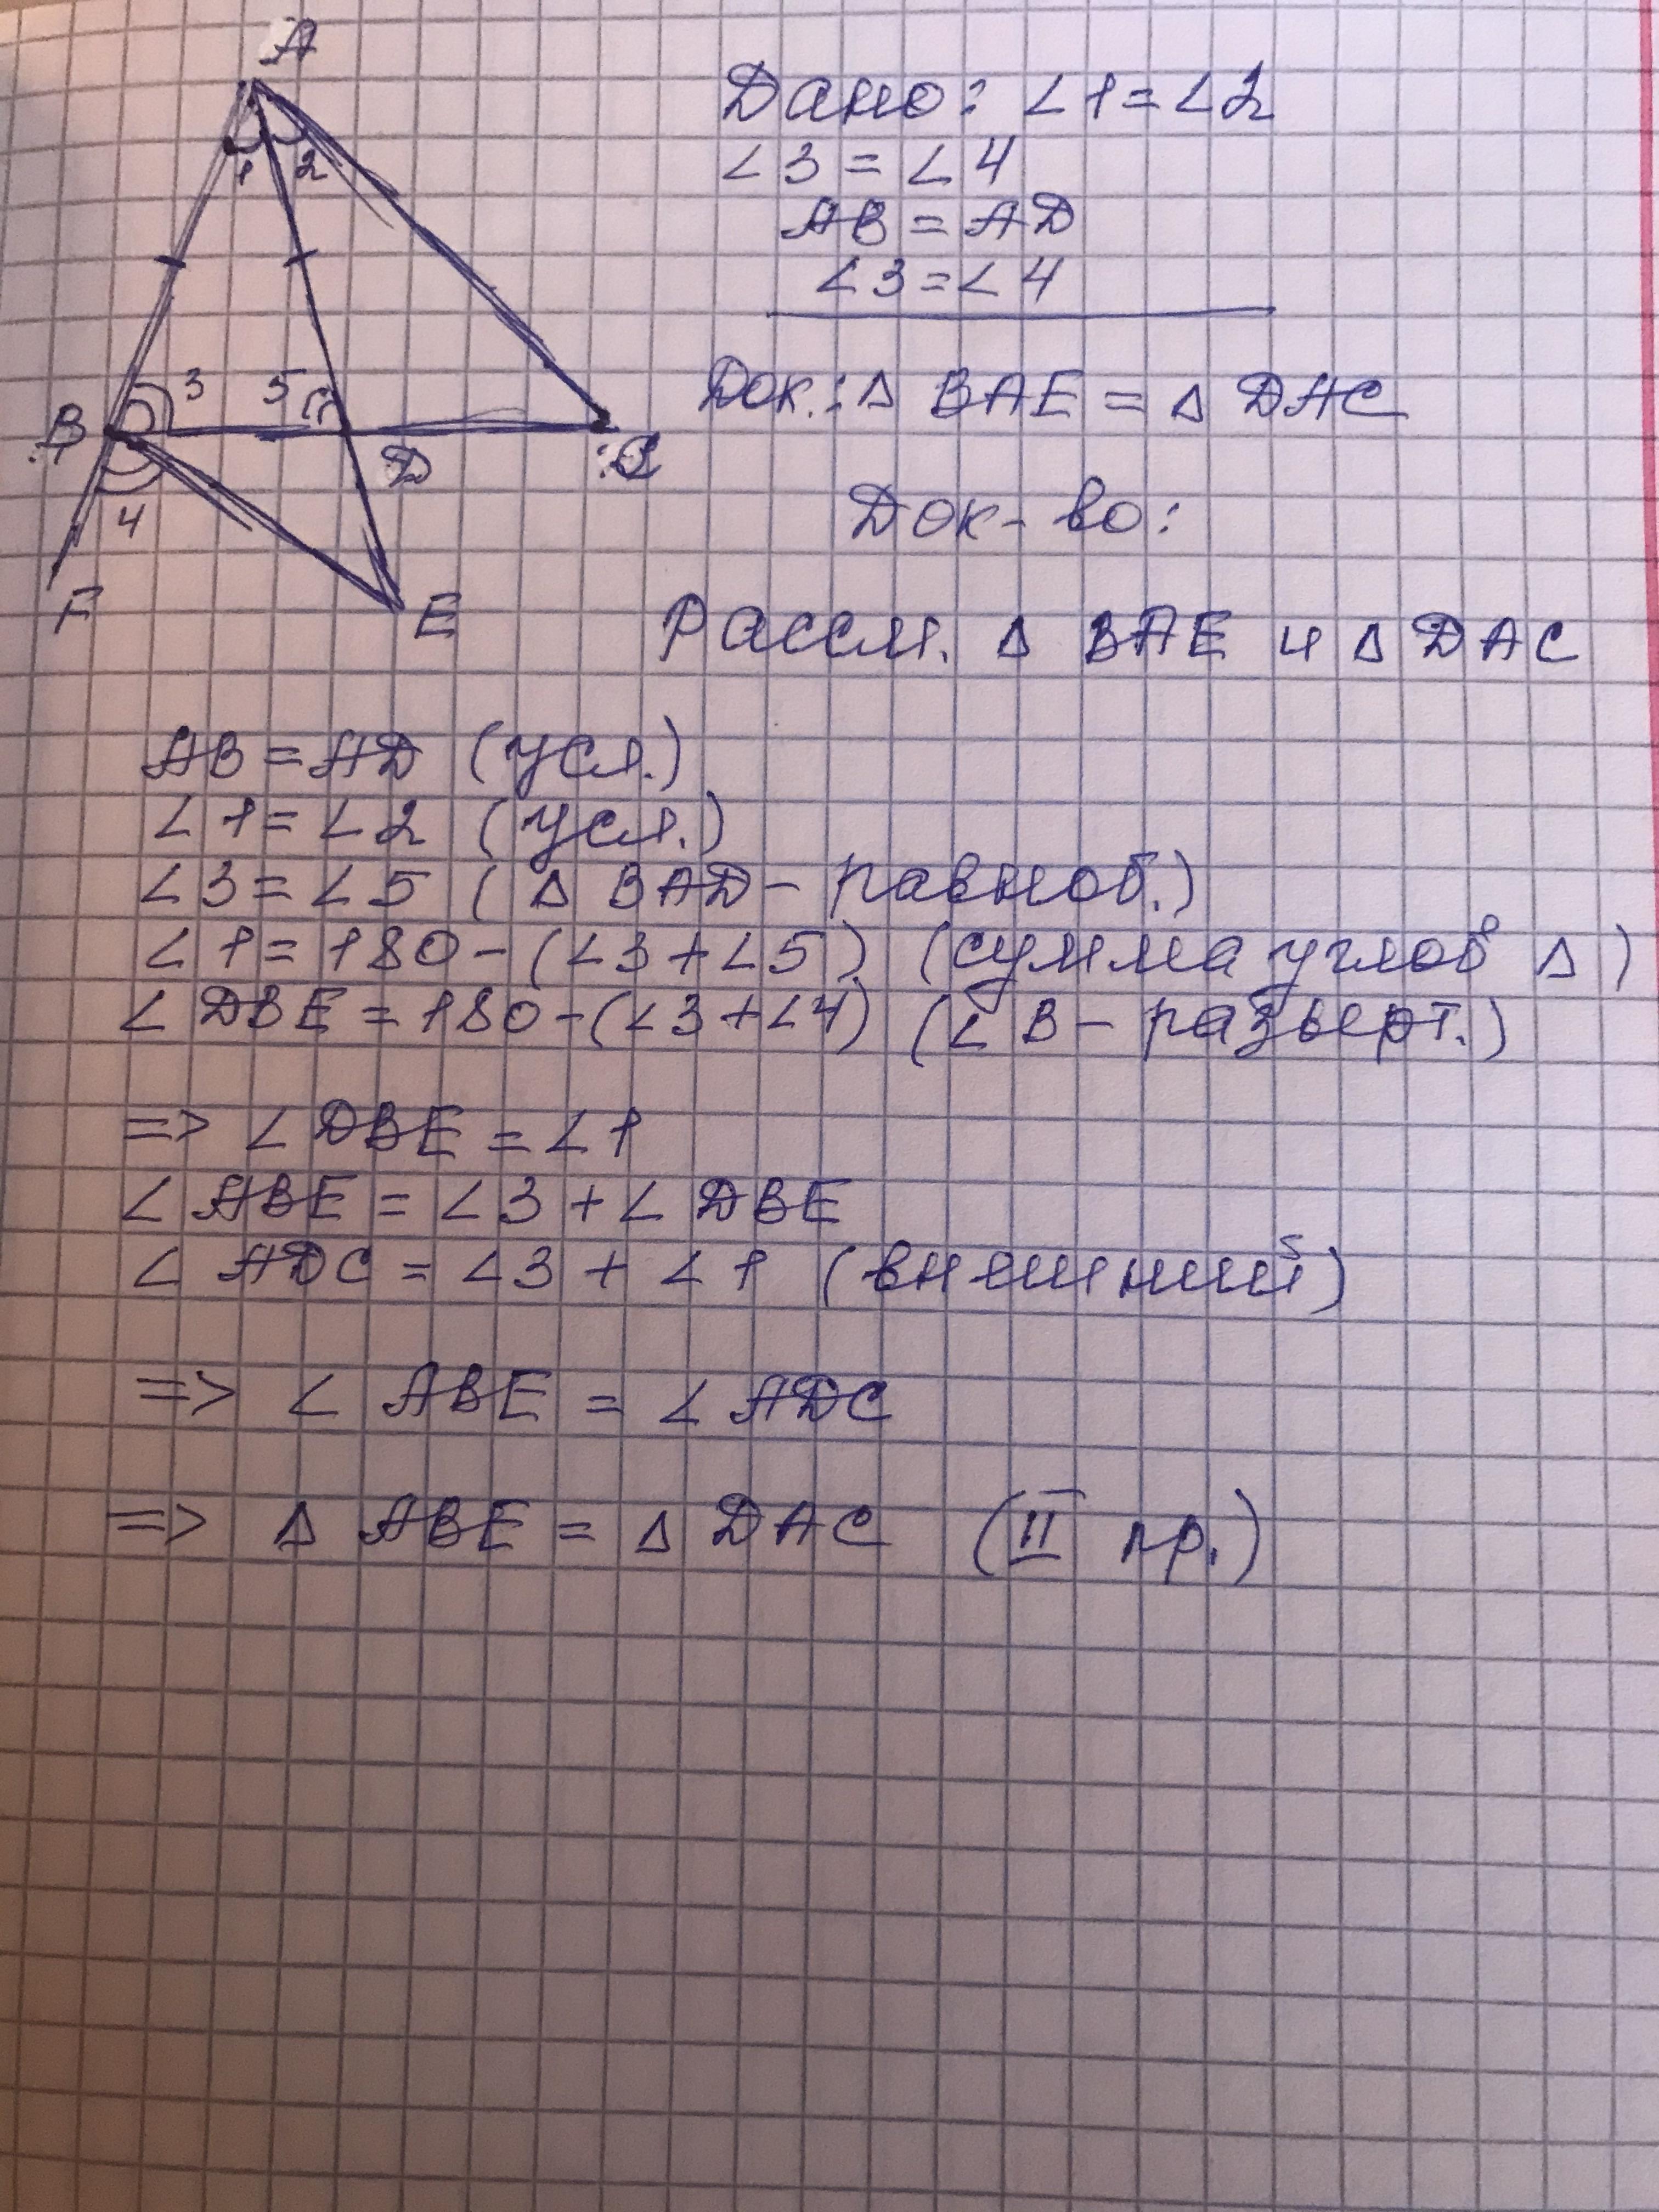 A
Дано: ∠1=∠2
1 2
∠3 = ∠4
AB = AD
∠3=∠4
3 5
Док.: Δ BAE = Δ DAC
B
D
C
4
Док-во:
F
E
Рассм. Δ BAE и Δ DAC
AB = AD (усл.)
∠1=∠2 (усл.)
∠3=∠5 (Δ BAD - равноб.)
∠1=180-(∠3+∠5) (сумма углов Δ)
∠DBE=180-(∠3+∠4) (∠B - разверт.)
=> ∠DBE=∠1
∠ABE = ∠3 + ∠DBE
∠ADC = ∠3 + ∠1 (внешний)
=> ∠ABE = ∠ADC
=> Δ ABE = Δ DAC (II пр.)